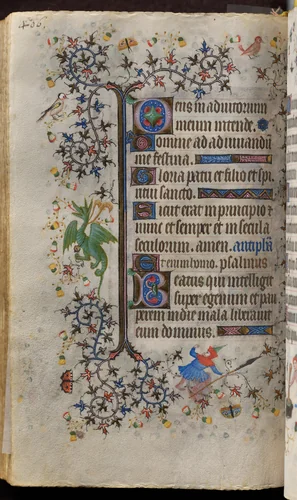 Deus in adiutorium
meum intende.
Domine ad adiuuandū
me festina.
Gloria patri et filio et spi
ritui sancto.
Sicut erat in principio &
nunc et semper et in secula
seculorum. amen. antipħa
psalmus
Beatus qui intelligit
super egenum et pau
perem in die mala liberauit
eum dominus.